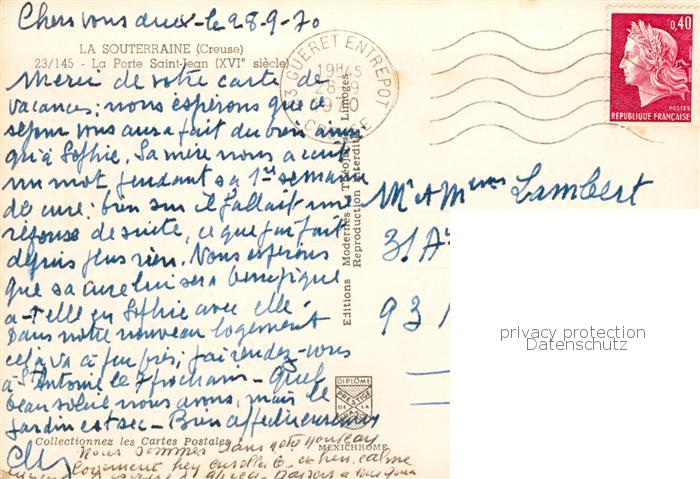 Chers vous deux - le 28-9-70
LA SOUTERRAINE (Creuse)
23/145 - La Porte Saint-Jean (XVIe siècle)
Merci de votre carte de
vacances: nous espérons que ce
séjour vous aura fait du bien ainsi
qu'à Sophie, Sa mère nous a écrit
un mot pendant sa 1ère semaine
de cure: bien sur il fallait une
réponse de suite, ce que j'ai fait
depuis plus rien. Nous espérons
que sa cure lui sera bénéfique
a-t-elle eu Sophie avec elle.
Dans notre nouveau logement
cela va à peu près; j'ai rendez-vous
à St Antoine le 7 prochain - Quel
beau soleil nous avons, mais le
jardin est sec - Bien affectueusement
Collectionnez les Cartes Postales
Nous sommes dans notre nouveau
logement
calme
23 GUERET ENTREPOT
19H45
28-9
1970
CREUSE
0,40
POSTES
REPUBLIQUE FRANÇAISE
Editions Modernes Théojac Limoges
Reproduction Interdite
Mr & Mme Lambert
31 A
93
DIPLÔME
PRESTIGE
DE LA
FRANCE
MEXICHROME
privacy protection
Datenschutz